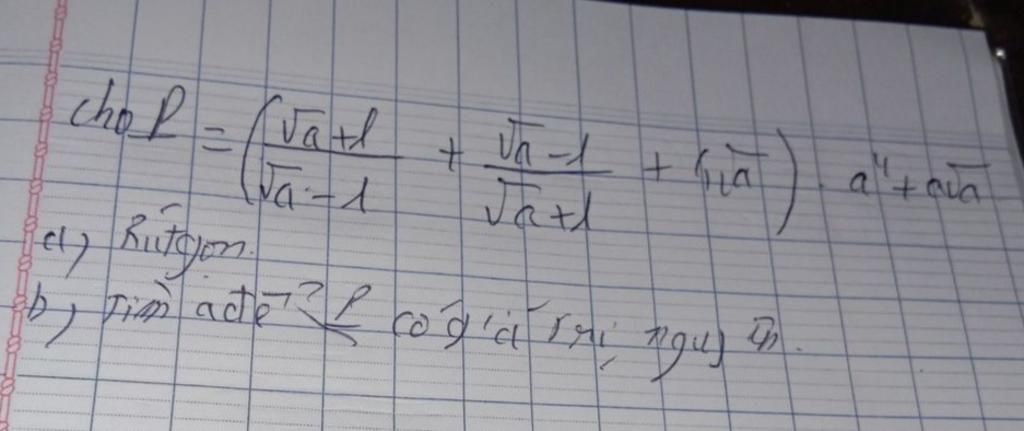 cho P = (√a+1 / √a-1 + √a-1 / √a+1 + √a) . a + a√a
a) Rút gọn.
b, Tìm a để P có giá trị nguyên.